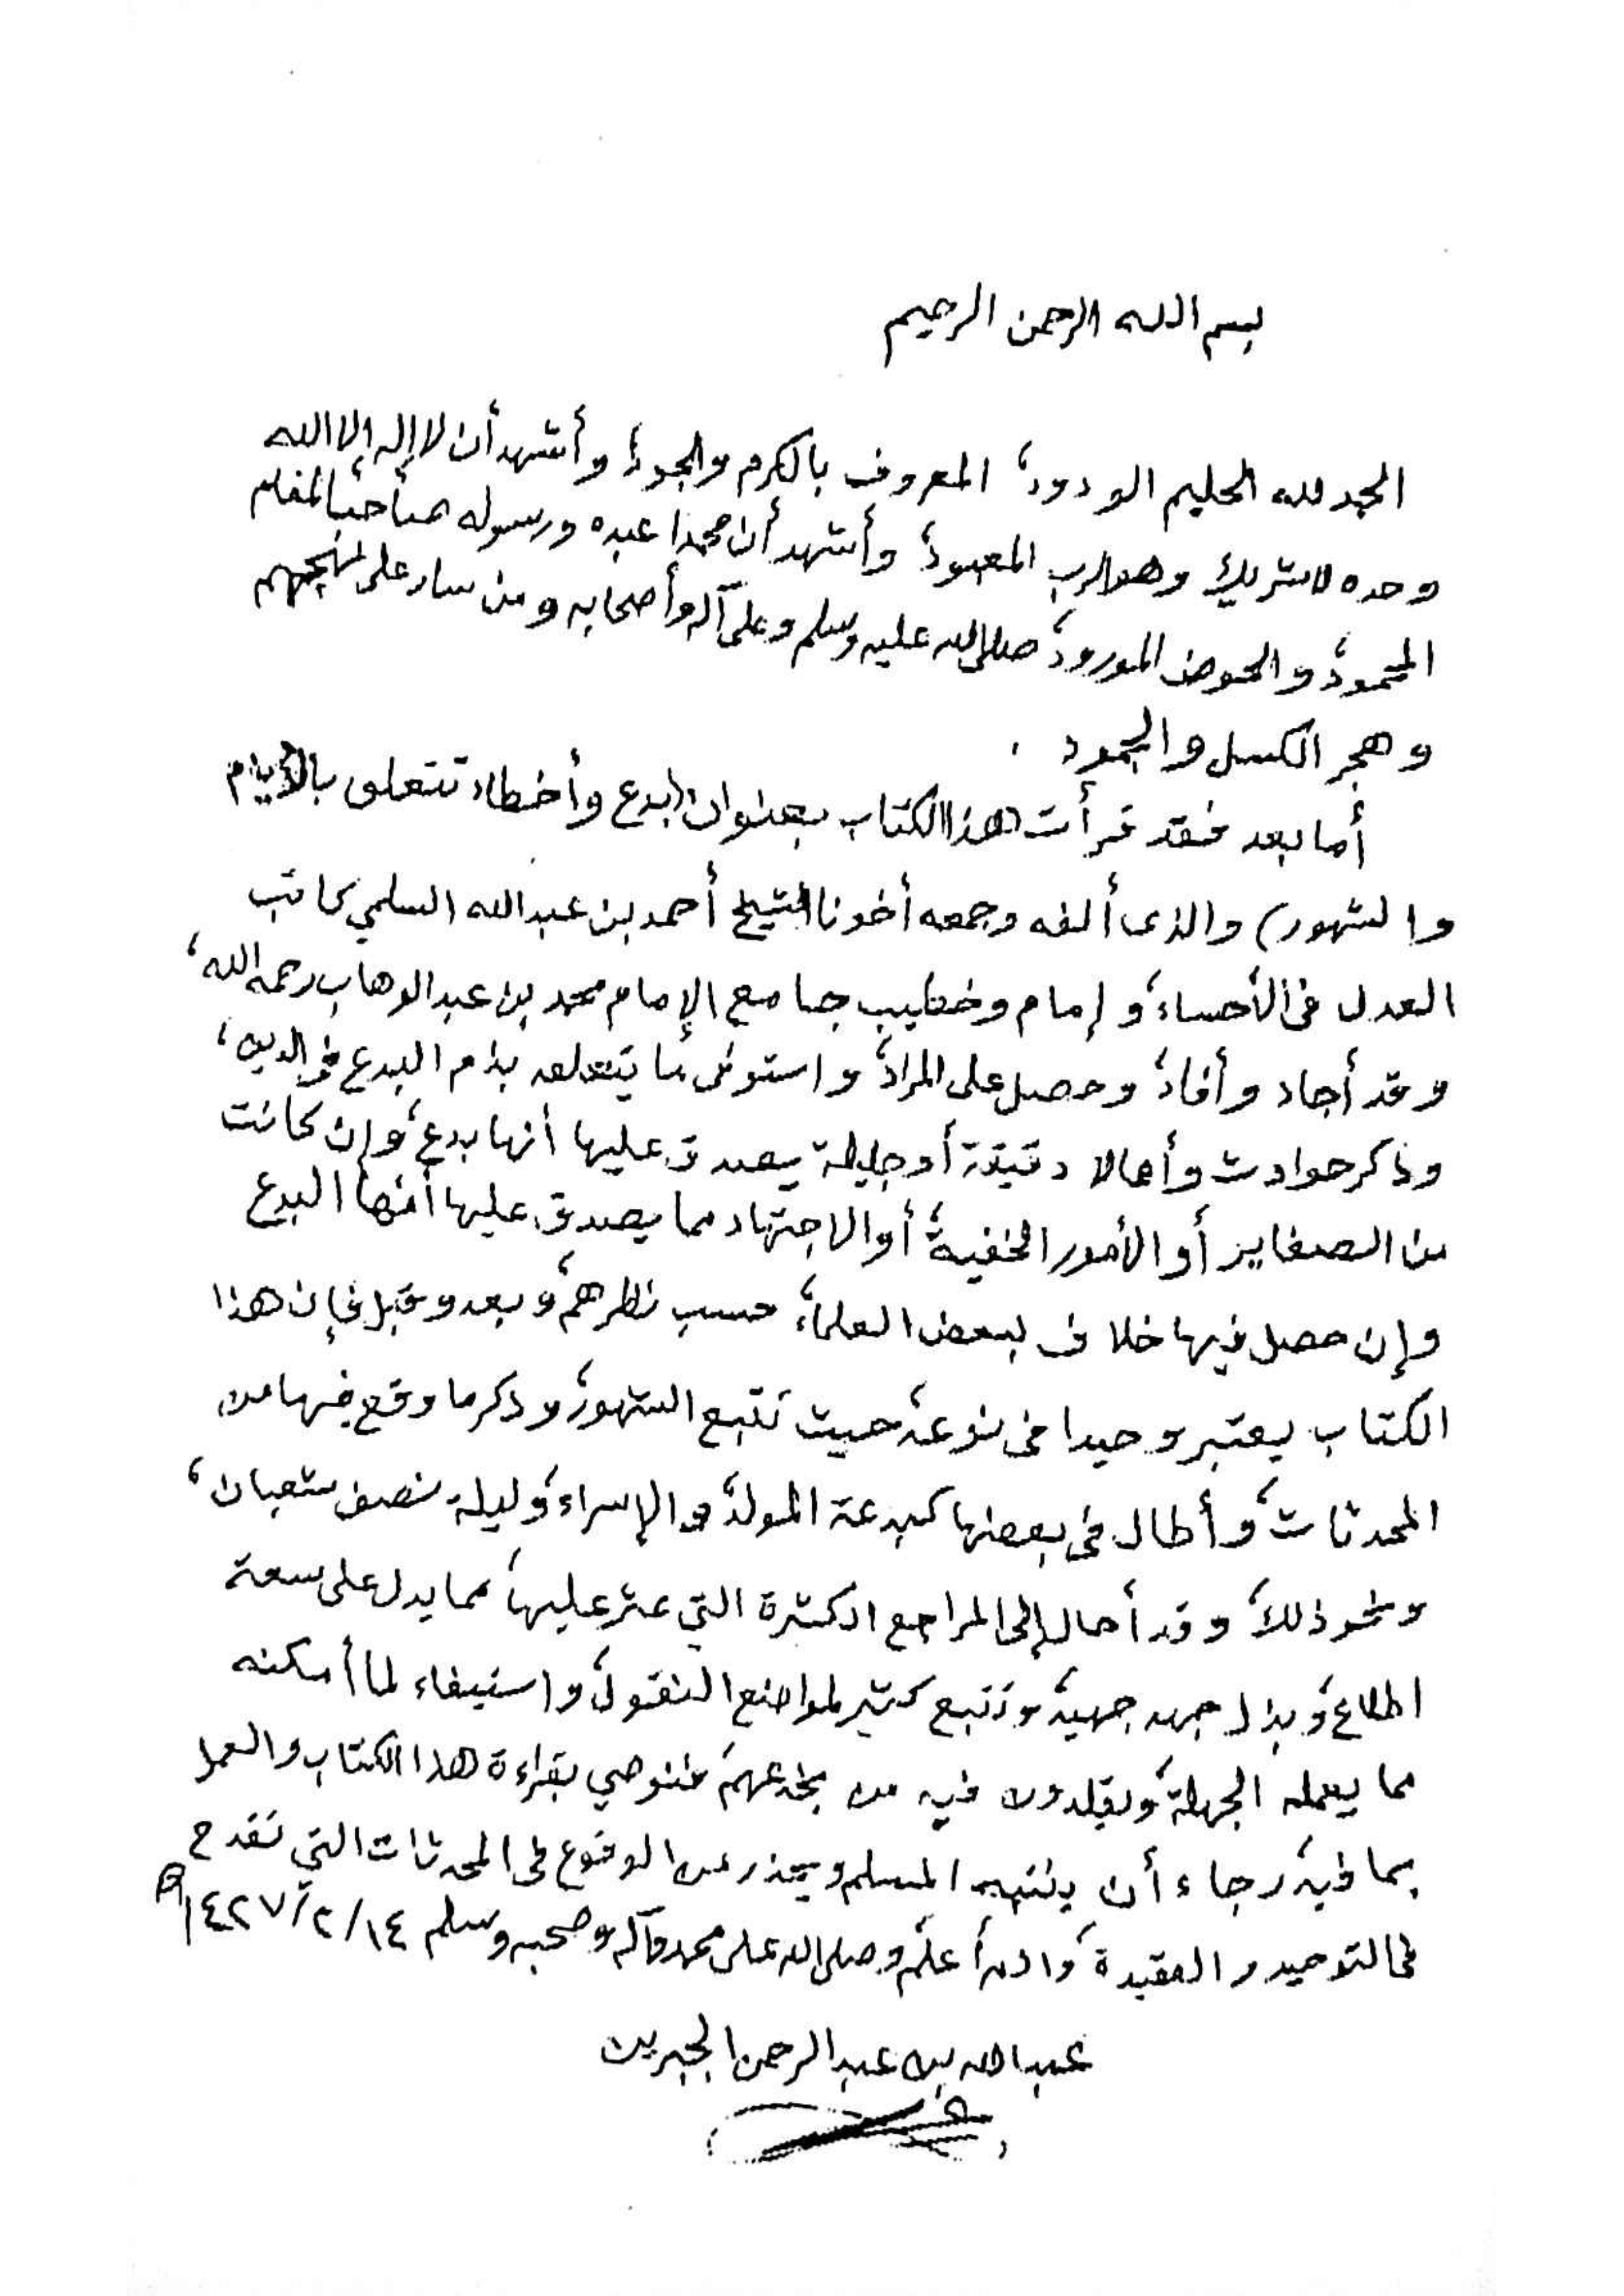 بسم الله الرحمن الرحيم
الحمد لله الحليم الودود، المعروف بالكرم والجود، وأشهد أن لا إله إلا الله
وحده لا شريك وهو الرب المعبود، وأشهد أن محمدا عبده ورسوله صاحب المقام
المحمود، والحوض المورود، صلى الله عليه وسلم وعلى آله وأصحابه ومن سار على نهجهم
وهجر الكسل والجمود .
أما بعد فقد قرأت هذا الكتاب بعنوان (بدع وأخطاء تتعلق بالأيام
والشهور) والذى ألفه وجمعه أخونا الشيخ أحمد بن عبدالله السلمي كاتب
العدل فى الأحساء، وإمام وخطيب جامع الإمام محمد بن عبدالوهاب رحمه الله،
وقد أجاد وأفاد، وحصل على المراد، واستوفى ما يتعلق بذم البدع فى الدين،
وذكر حوادث وأعمالا دقيقة أو جليلة يصدق عليها أنها بدع، وإن كانت
من الصغاير أو الأمور الخفية، أو الاجتهاد مما يصدق عليها أنها البدع
وإن حصل فيها خلاف لبعض العلماء، حسب نظرهم، وبعد وقبل فإن هذا
الكتاب يعتبر وحيدا فى نوعه، حيث تتبع الشهور، وذكر ما وقع فيها من
المحدثات، وأطال فى بعضها كبدعة المولد، والإسراء، وليلة نصف شعبان،
ونحو ذلك، وقد أحال إلى المراجع الكثيرة التي عثر عليها، مما يدل على سعة
اطلاع، وبذل جهد جهيد، وتتبع كثير لمواضع النقول، واستيفاء لما أمكنه
مما يعمله الجهلة، ويقلدون فيه من يخدعهم، فنوصي بقراءة هذا الكتاب والعمل
بما فيه، رجاء أن ينتبه المسلم ويحذر من الوقوع فى المحدثات التي تقدح
فى التوحيد والعقيدة، والله أعلم، وصلى الله على محمد وآله وصحبه وسلم ١٤٢٧/٢/١٤هـ
عبدالله بن عبدالرحمن الجبرين